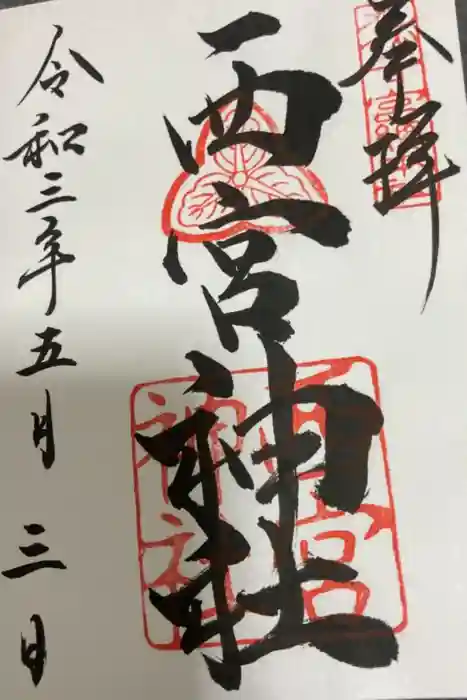 奉拝
西宮神社
令和三年五月三日
西宮
神社